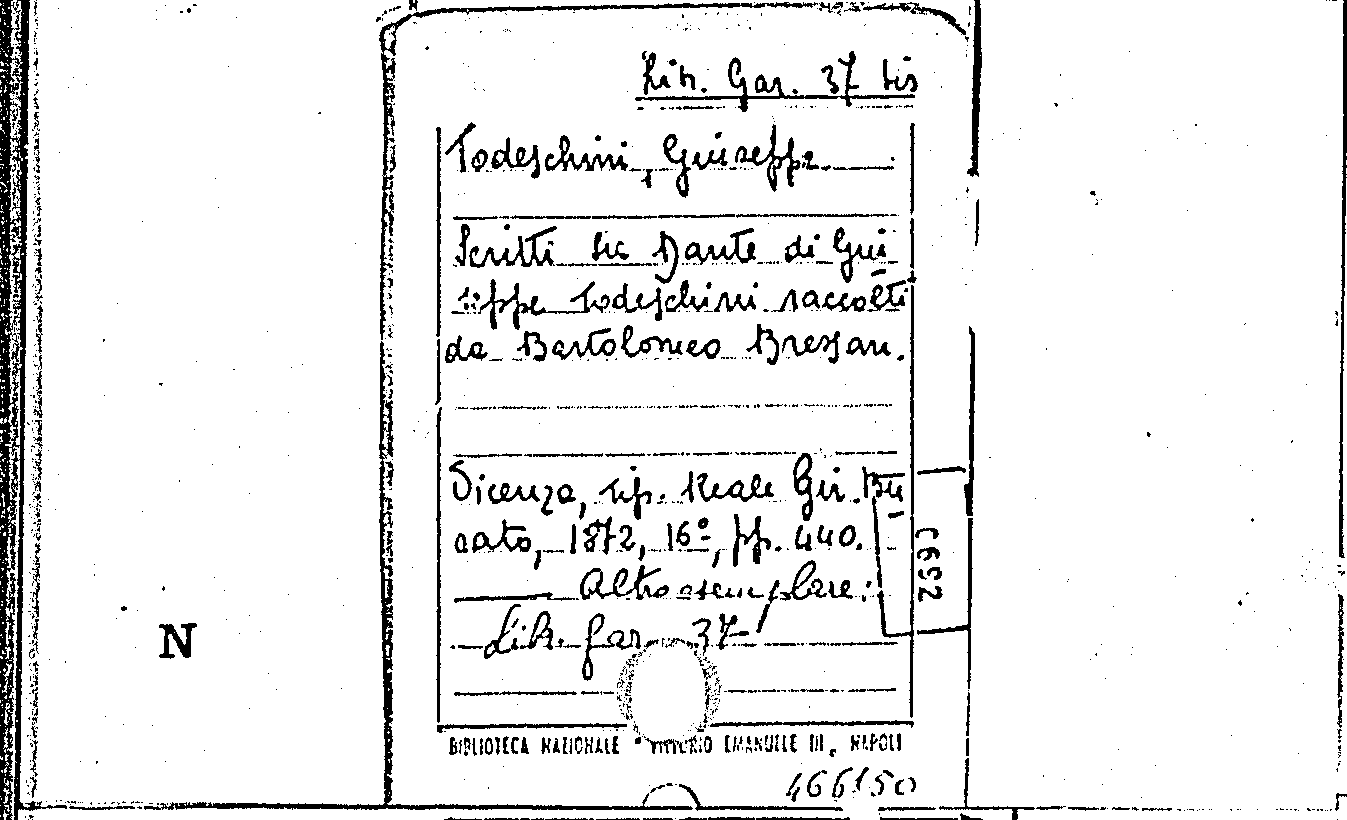 Lib. Gar. 37 bis
Todeschini, Giuseppe
Scritti su Dante di Giu
seppe Todeschini raccolti
da Bartolomeo Bressan.
Vicenza, tip. Reale Gir. Bu
rato, 1872, 16º, pp. 440.
Altro esemplare:
Lib. Gar. 37
C692
N
BIBLIOTECA NAZIONALE "VITTORIO EMANUELE III, NAPOLI
466150